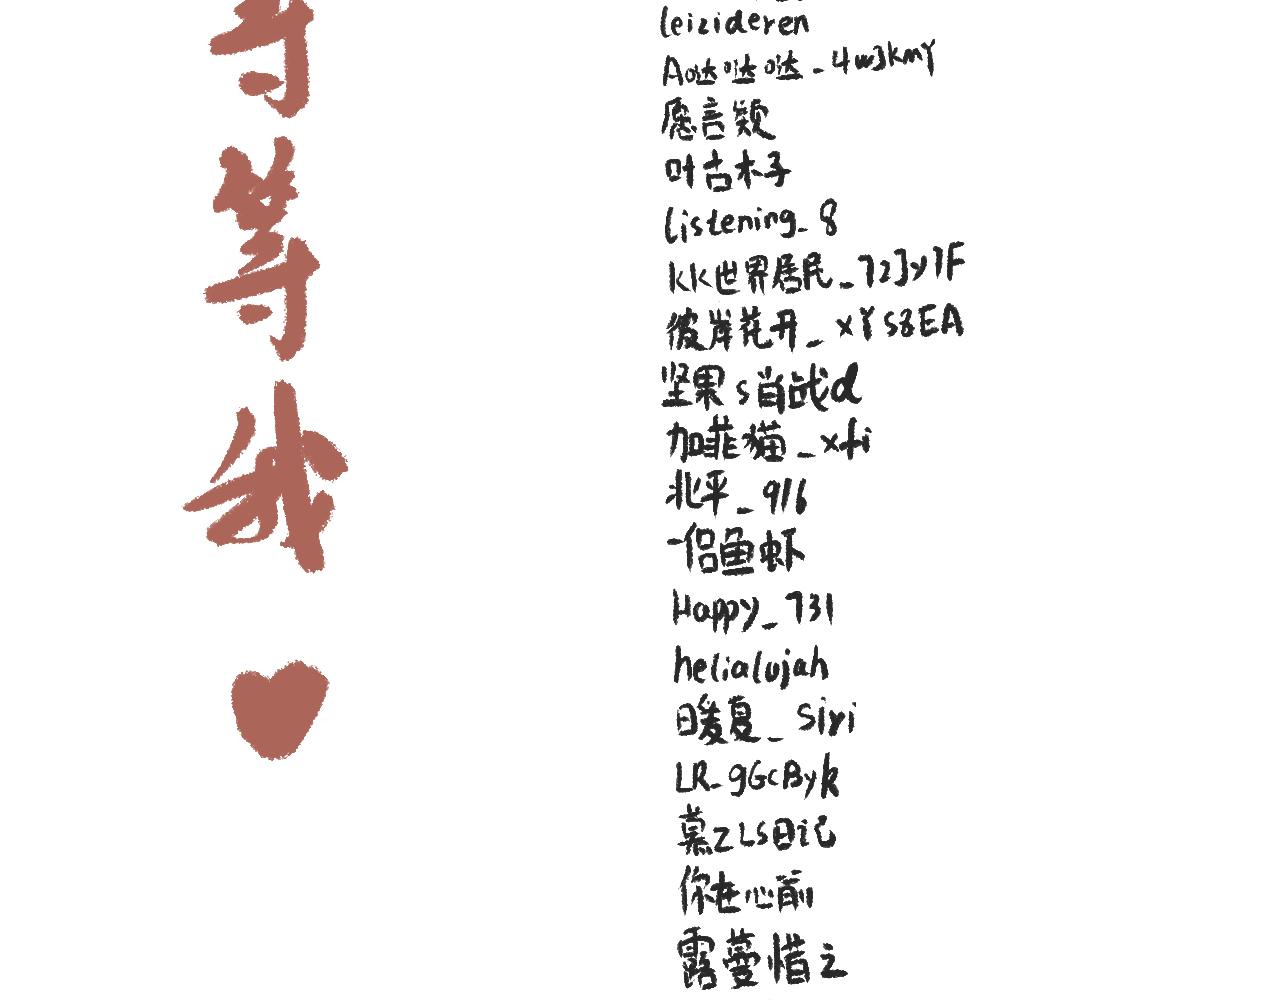 等
等
我
leizideren
A哒哒哒_4w3kmY
愿言颖
叶古木子
listening_8
kk世界居民_72Jy1F
彼岸花开_xYS8EA
坚果s肖战d
加菲猫_xfi
北平_916
一侣鱼虾
Happy_731
helialujah
暖夏_Siyi
LR_gGcByk
慕ZLS日记
你在心前
露蔓惜之